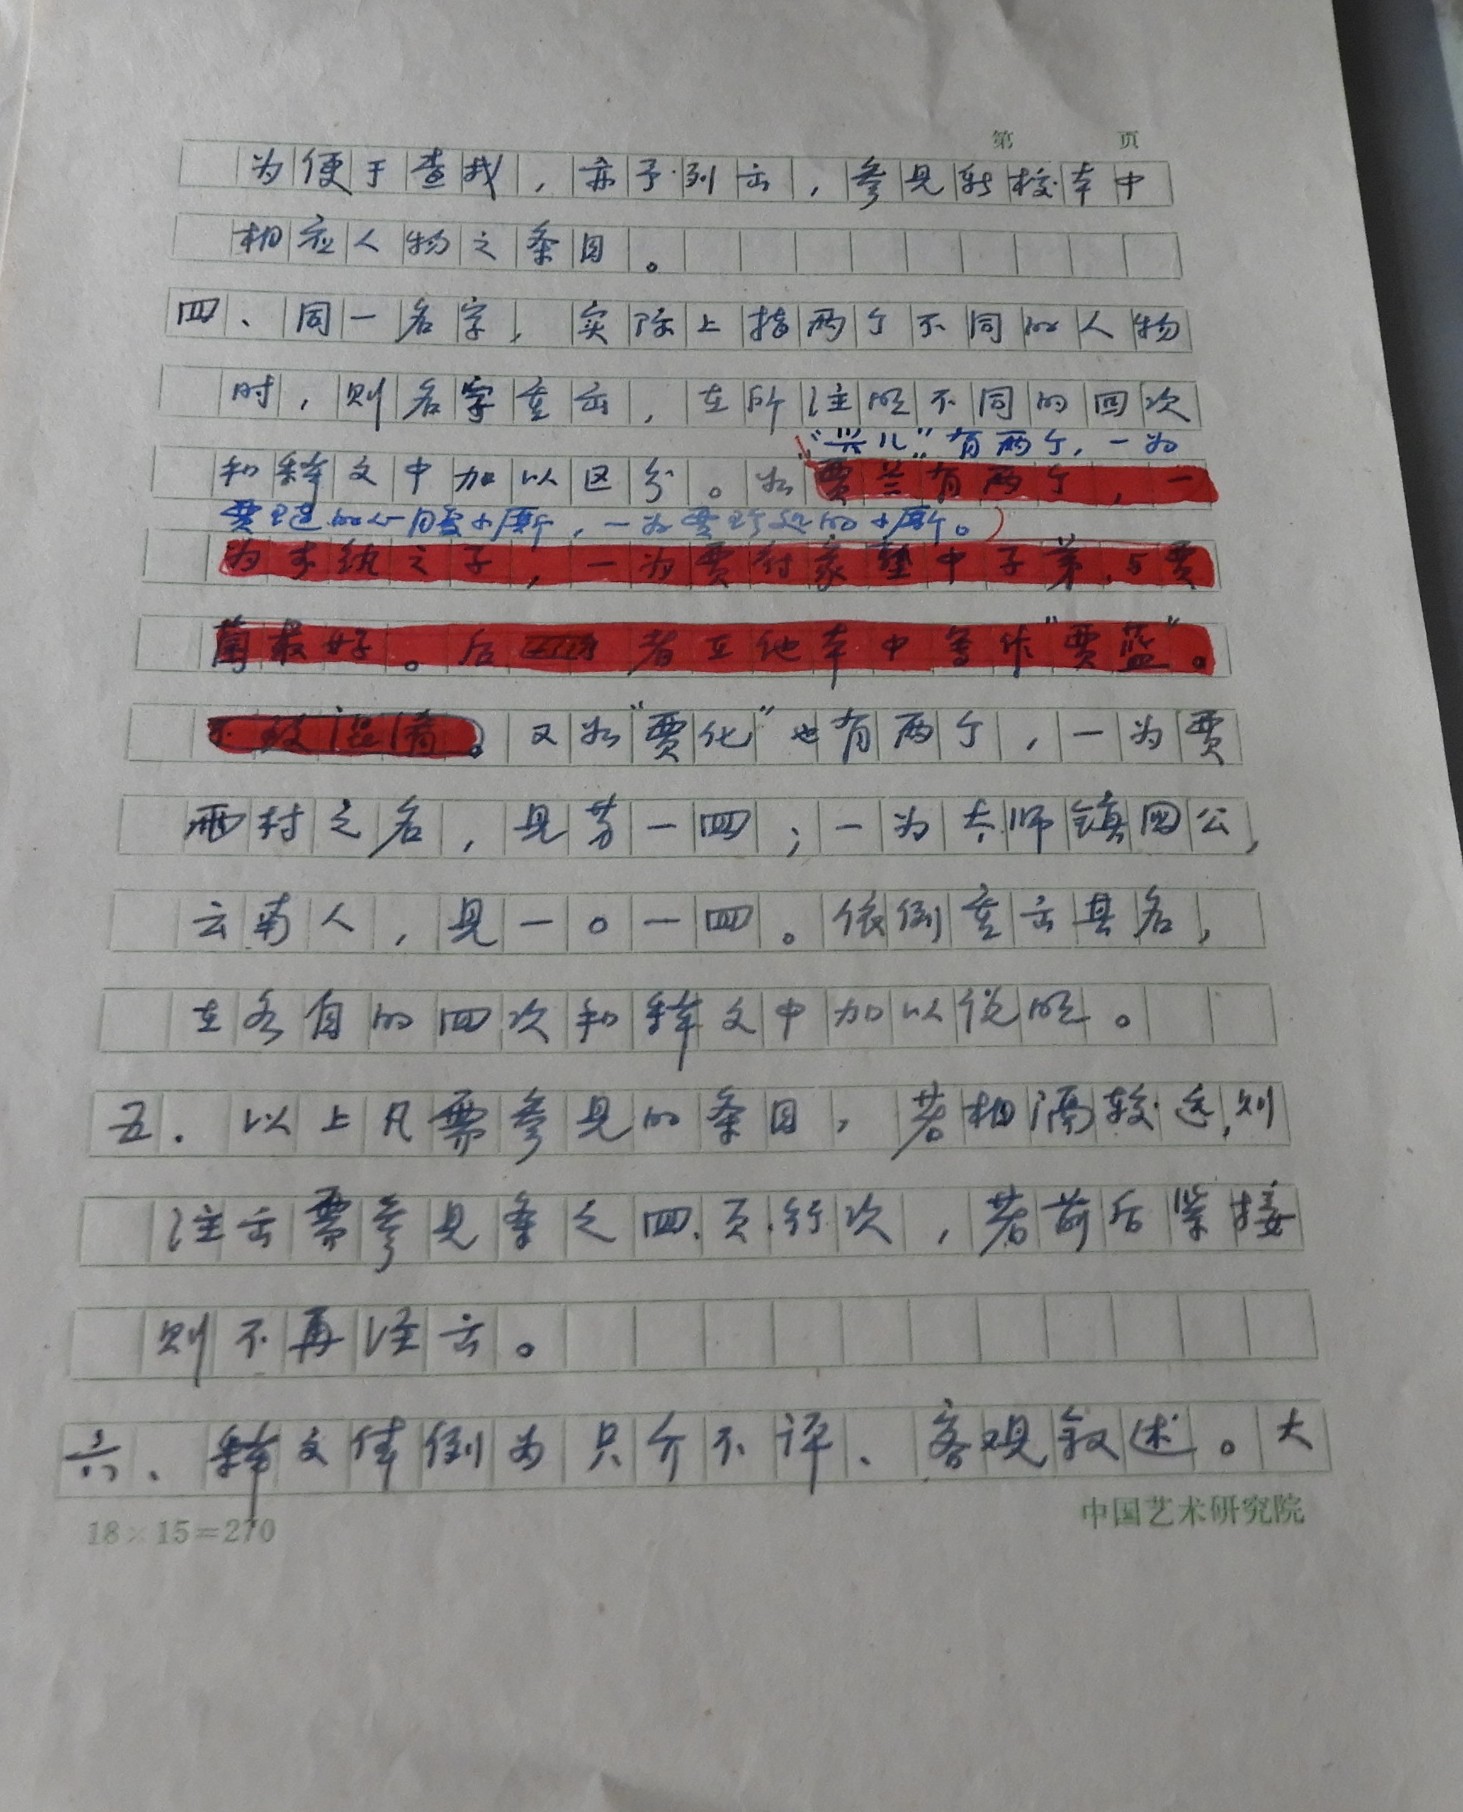 第 页
为便于查找，亦予列出，参见新校本中
相应人物之条目。
四、同一名字，实际上指两个不同的人物
时，则名字重出，在所注明不同的回次
“兴儿”有两个，一为
和释文中加以区分。如贾兰有两个，一
贾琏的心腹小厮，一为贾珍处的小厮。
为李纨之子，一为贾府家塾中子弟，与贾
菌最好。后者在他本中多作“贾蓝”。
不致混淆。又如“贾化”也有两个，一为贾
雨村之名，见第一回；一为太师镇国公，
云南人，见一〇一回。依例重出其名，
在各自的回次和释文中加以说明。
五．以上凡需参见的条目，若相隔较远，则
注出需参见条之回、页、行次，若前后紧接
则不再注出。
六、释文体例为只介不评、客观叙述。大
18×15=270
中国艺术研究院